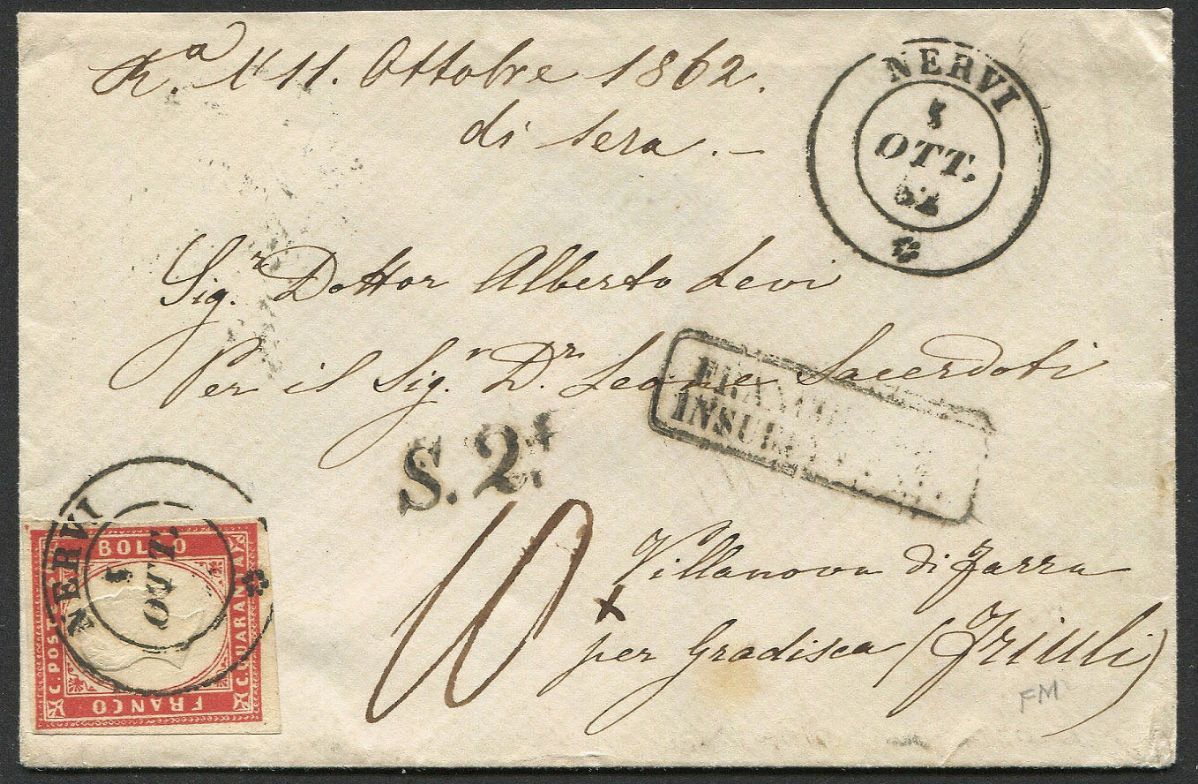 R.a l'11. Ottobre 1862.
di sera. -
NERVI
OTT.
62
Sig.r Dottor Alberto Levi
Per il Sig.r D.r Leone Sacerdoti
INSUF
S. 2.
10
Villanova di Farra
per Gradisca (Friuli)
FM
NERVI
OTT.
C. POSTE
BOLLO
C. QUARANTA
FRANCO